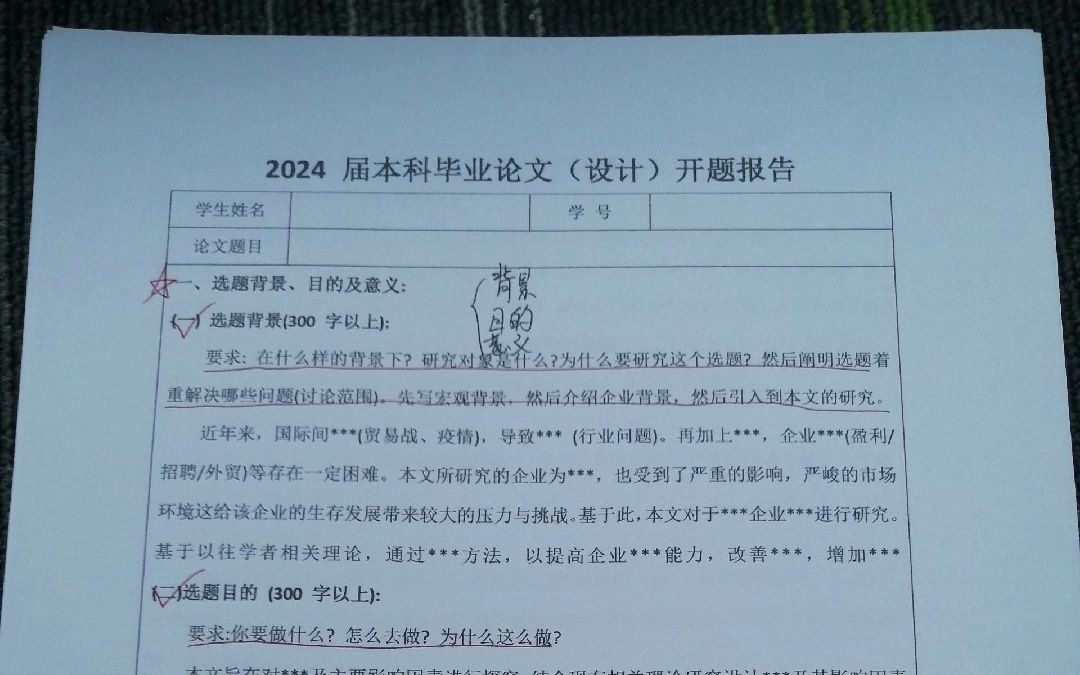 2024 届本科毕业论文（设计）开题报告
学生姓名
学 号
论文题目
一、选题背景、目的及意义:
背景
目的
意义
(一) 选题背景(300 字以上):
要求: 在什么样的背景下? 研究对象是什么?为什么要研究这个选题? 然后阐明选题着
重解决哪些问题(讨论范围)。先写宏观背景，然后介绍企业背景，然后引入到本文的研究。
近年来，国际间***(贸易战、疫情)，导致*** (行业问题)。再加上***，企业***(盈利/
招聘/外贸)等存在一定困难。本文所研究的企业为***，也受到了严重的影响，严峻的市场
环境这给该企业的生存发展带来较大的压力与挑战。基于此，本文对于***企业***进行研究。
基于以往学者相关理论，通过***方法，以提高企业***能力，改善***，增加***
(二)选题目的 (300 字以上):
要求:你要做什么? 怎么去做? 为什么这么做?
本文旨在对***及主要影响因素进行探究，结合现有相关理论研究设计***及其影响因素